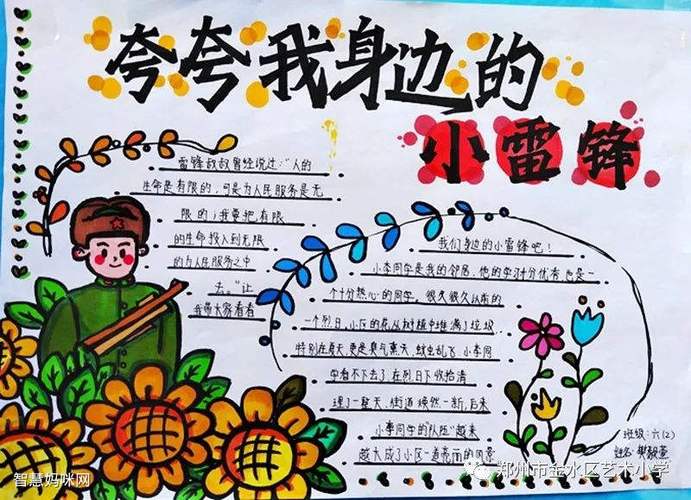 夸夸我身边的
小雷锋
雷锋叔叔曾经说过："人的
生命是有限的，可是为人民服务是无
限的，我要把有限
的生命投入到无限
的为人民服务之中
去。"让
我带大家看看
我们身边的小雷锋吧！
小李同学是我的邻居，他的学习十分优秀，也是一
个十分热心的同学。很久很久以前的
一个假日，小区的花丛树植中堆满了垃圾，
特别在夏天，更是臭气熏天，蚊虫乱飞，小李同
学看不下去了，在别日下收拾清
理了一整天，街道焕然一新，后来
小李同学的"队伍"越来
越大成了小区一道亮丽的风景
班级：六(2)
姓名：
智慧妈咪网
郑州市金水区艺术小学